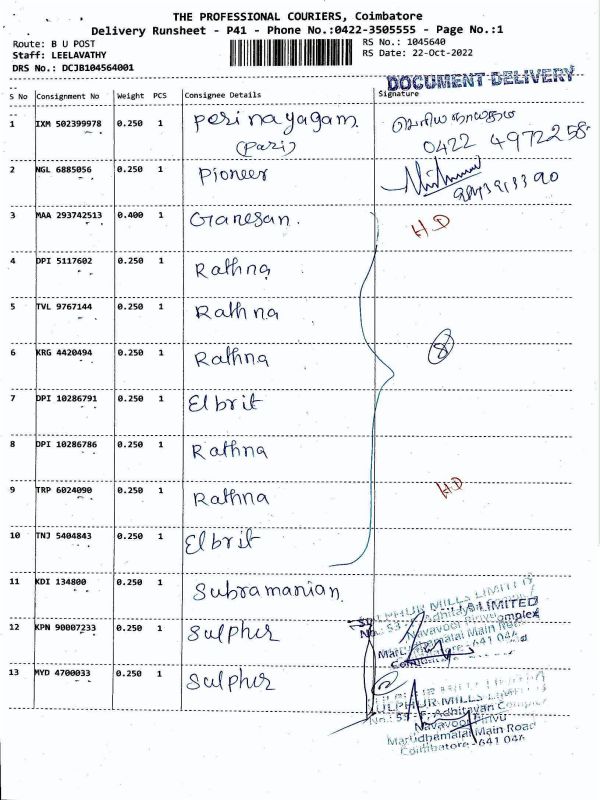 THE PROFESSIONAL COURIERS, Coimbatore
Delivery Runsheet - P41 - Phone No.:0422-3505555 - Page No.:1
Route: B U POST
Staff: LEELAVATHY
DRS No.: DCJB104564001
RS No.: 1045640
RS Date: 22-Oct-2022
DOCUMENT DELIVERY
S No Consignment No Weight PCS Consignee Details Signature
1 IXM 502399978 0.250 1 Perinayagam
(Pari)
பெரியநாயகம்
0422 4972258
2 NGL 6885056 0.250 1 Pioneer
3 MAA 293742513 0.400 1 Ganesan. H.D
4 DPI 5117602 0.250 1 Rathna
5 TVL 9767144 0.250 1 Rathna
6 KRG 4420494 0.250 1 Rathna 8
7 DPI 10286791 0.250 1 Elbrit
8 DPI 10286786 0.250 1 Rathna
9 TRP 6024090 0.250 1 Rathna H.D
10 TNJ 5404843 0.250 1 Elbrit
11 KDI 134800 0.250 1 Subramanian
12 KPN 90007233 0.250 1 Sulphur
13 MYD 4700033 0.250 1 Sulphur 2
SULPHUR MILLS LIMITED
LIMITED
Navavoor Pirivu
Marudhamalai Main Road
Coimbatore - 641 046
SULPHUR MILLS LIMITED
No.: 53 - F, Adhitayan Complex
Navavoor Pirivu
Marudhamalai Main Road
Coimbatore - 641 046